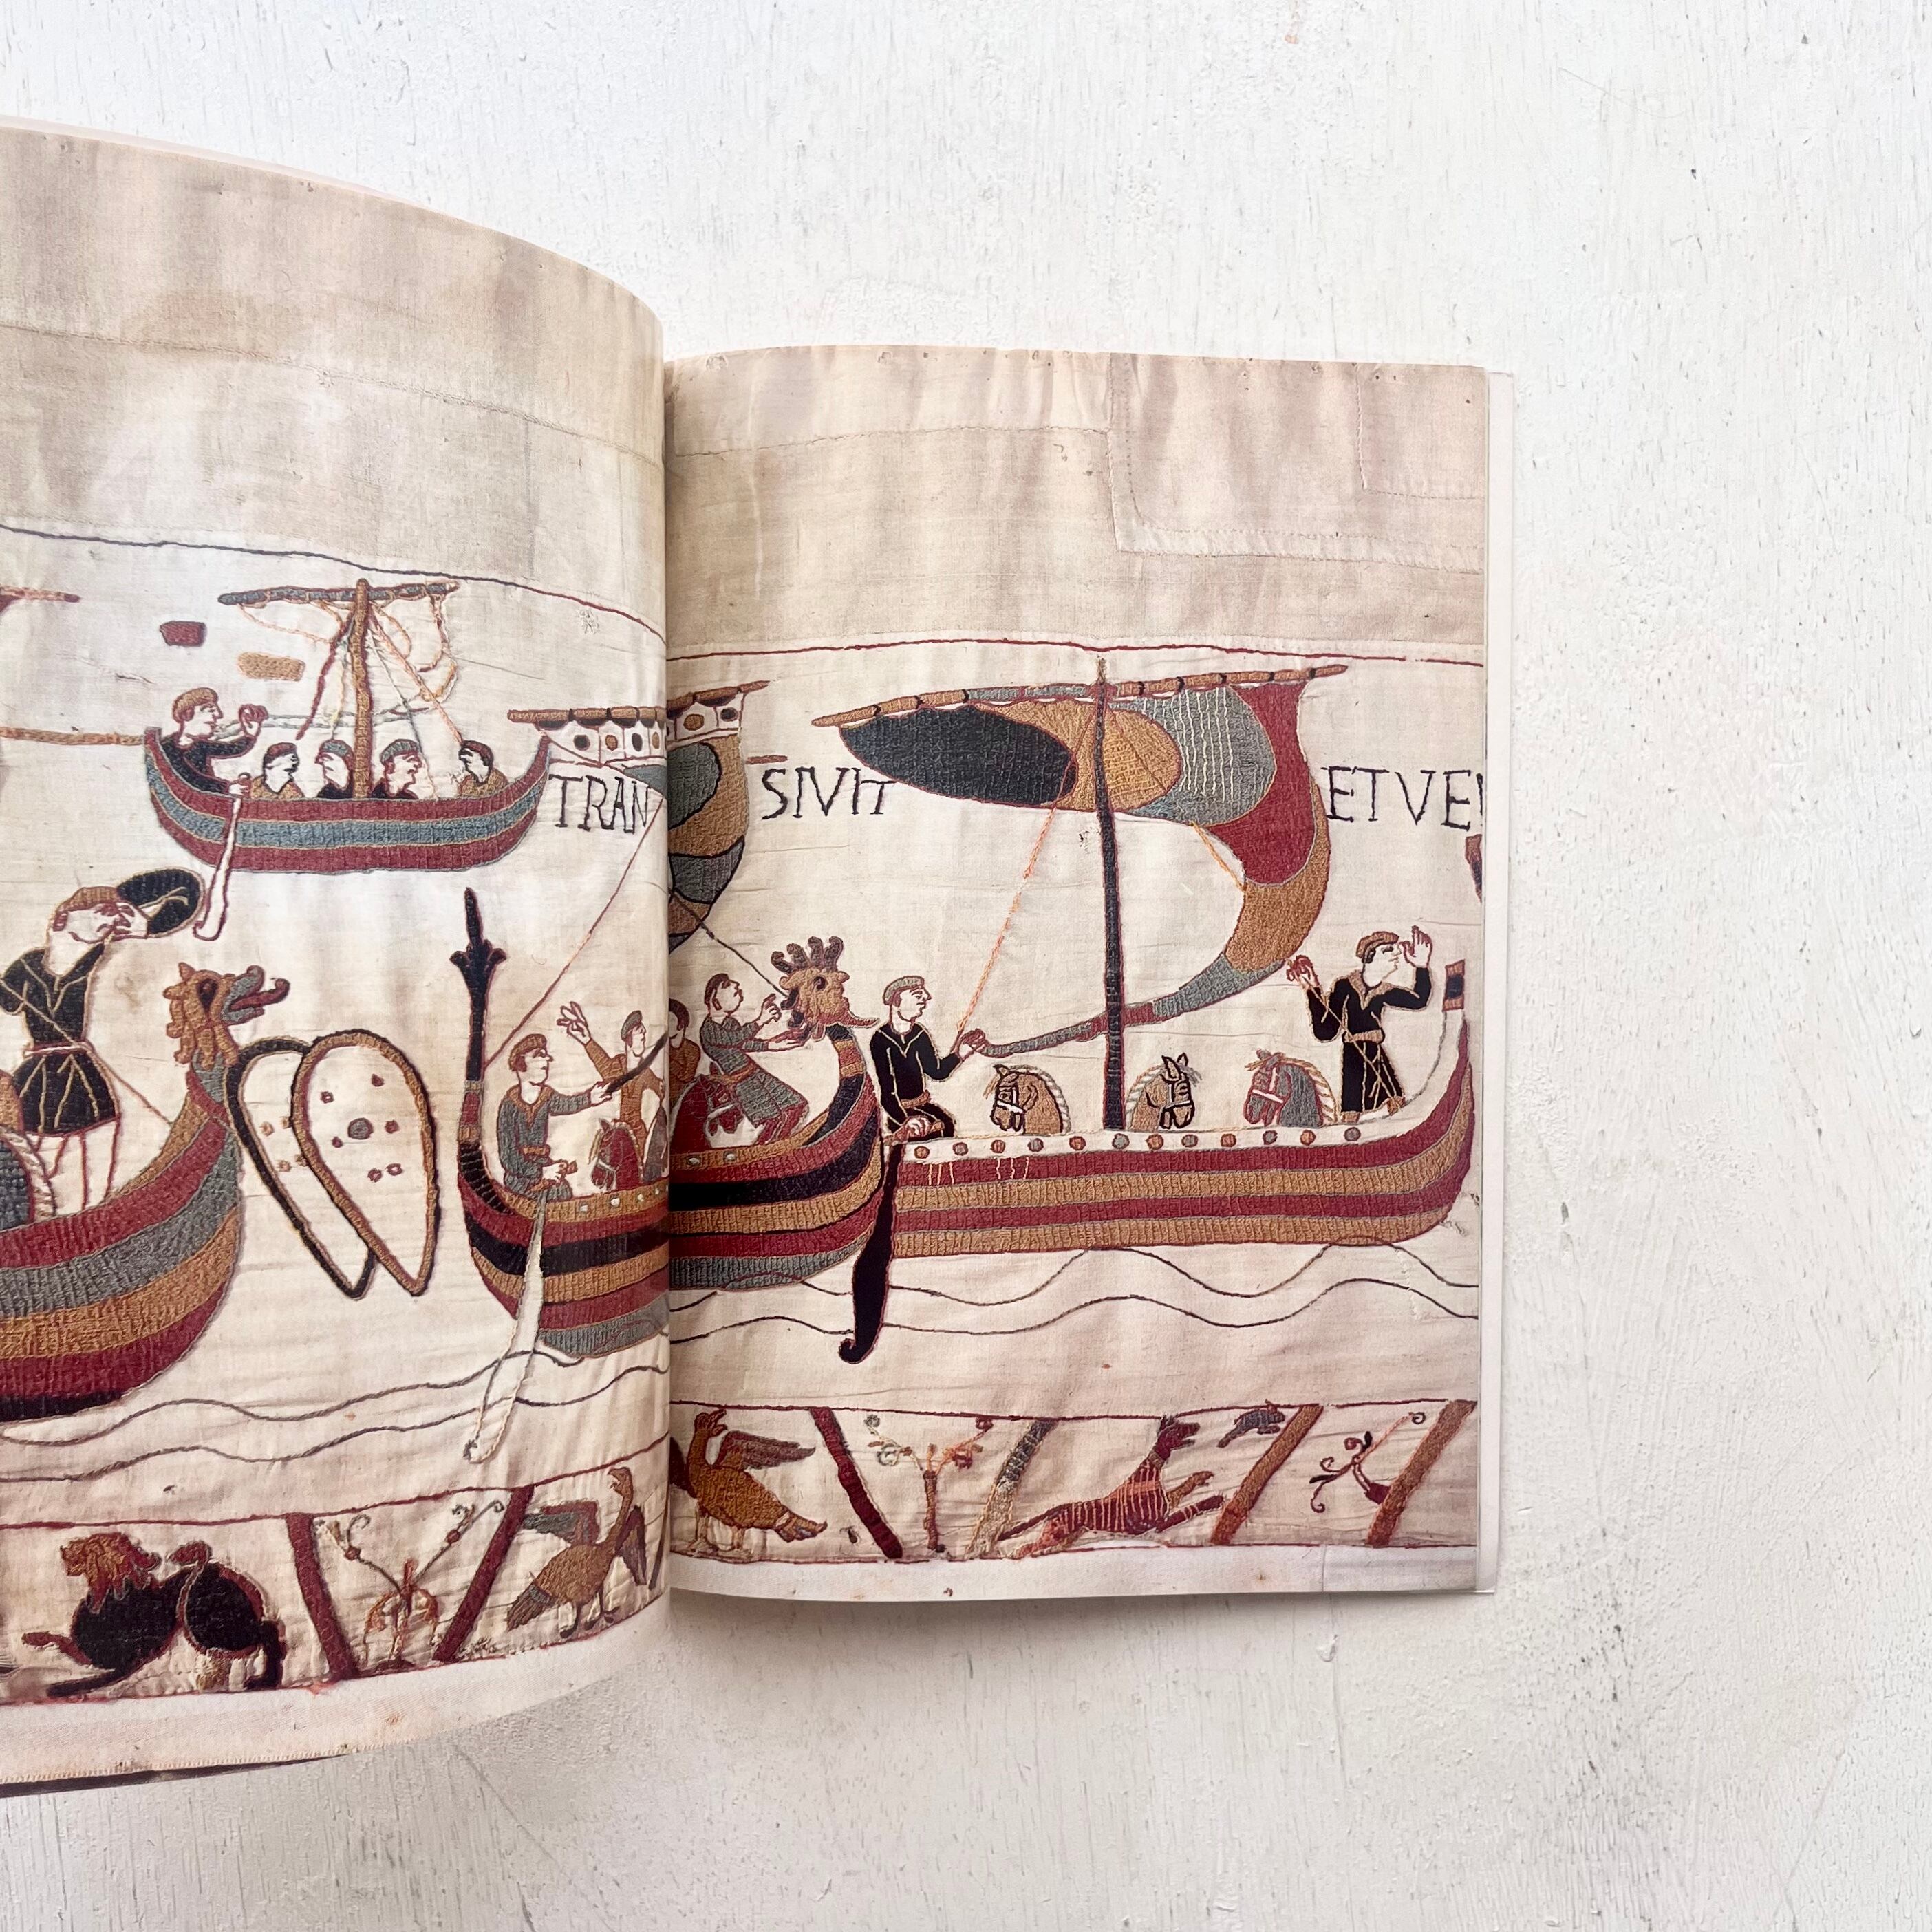 TRAN SIVIT ET VE